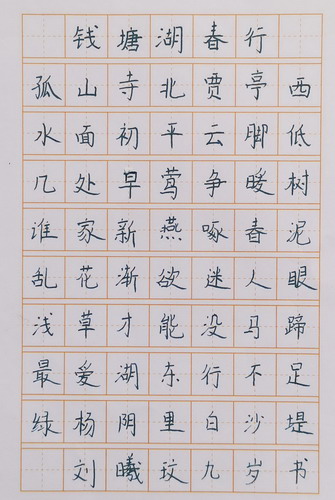 钱塘湖春行
孤山寺北贾亭西
水面初平云脚低
几处早莺争暖树
谁家新燕啄春泥
乱花渐欲迷人眼
浅草才能没马蹄
最爱湖东行不足
绿杨阴里白沙堤
刘曦玟九岁书